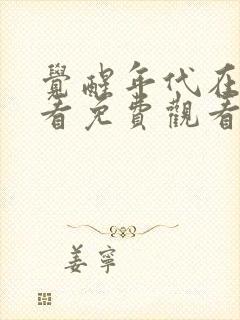 覺醒年代在
看免費觀看
姜寧